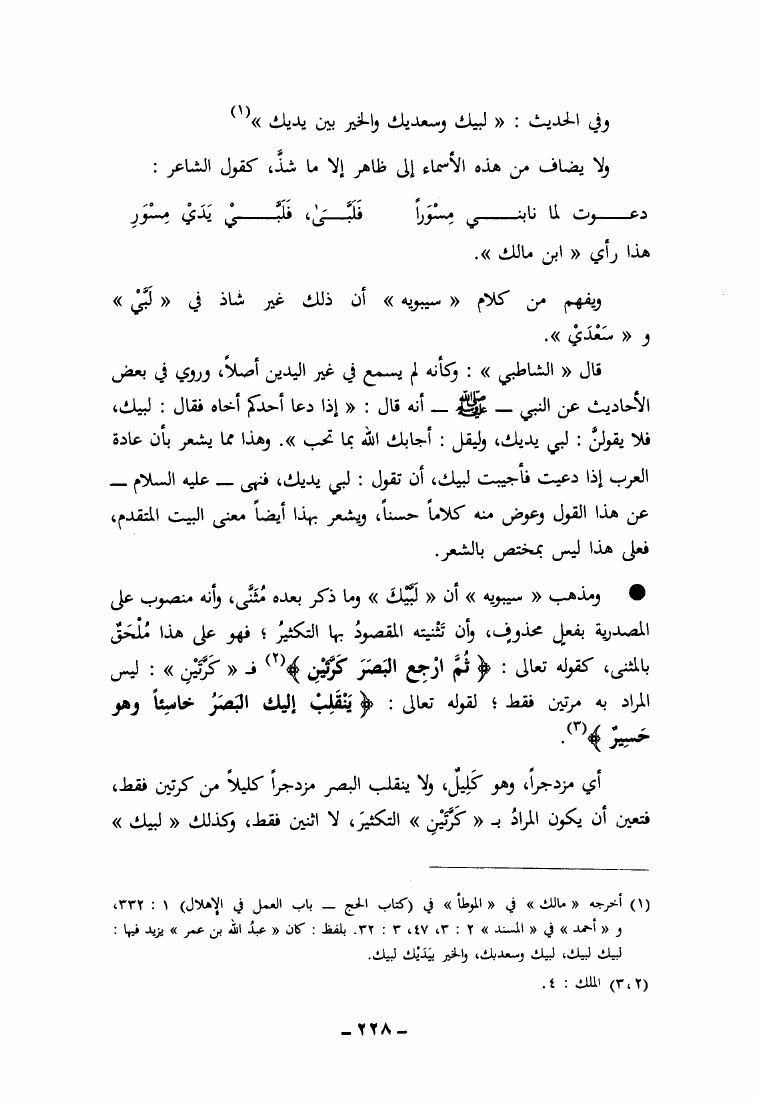 وفي الحديث : « لبيك وسعديك والخير بين يديك »(١)
ولا يضاف من هذه الأسماء إلى ظاهر إلا ما شذَّ، كقول الشاعر :
دعـــوت لما نابنــــي مِسْوَراً فَلَبَّـــىٰ، فَلَبَّـــيْ يَدَيْ مِسْوَرِ
هذا رأي « ابن مالك ».
ويفهم من كلام « سيبويه » أن ذلك غير شاذ في « لَبَّيْ »
و « سَعْدَيْ ».
قال « الشاطبي » : وكأنه لم يسمع في غير اليدين أصلاً، وروي في بعض
الأحاديث عن النبي ــ ﷺ ــ أنه قال : « إذا دعا أحدكم أخاه فقال : لبيك،
فلا يقولنَّ : لبي يديك، وليقل : أجابك الله بما تحب ». وهذا مما يشعر بأن عادة
العرب إذا دعيت فأجيبت لبيك، أن تقول : لبي يديك، فنهى ــ عليه السلام ــ
عن هذا القول وعوض منه كلاماً حسناً، ويشعر بهذا أيضاً معنى البيت المتقدم،
فعلى هذا ليس بمختص بالشعر.
● ومذهب « سيبويه » أن « لَبَّيْكَ » وما ذكر بعده مُثَنَّى، وأنه منصوب على
المصدرية بفعلٍ محذوفٍ، وأن تَثْنيته المقصودُ بها التكثيرُ ؛ فهو على هذا مُلْحَقٌ
بالمثنى، كقوله تعالى : ﴿ ثُمَّ ارْجِعِ البَصَرَ كَرَّتَيْنِ ﴾(٢) فـ « كَرَّتَيْنِ » : ليس
المراد به مرتين فقط ؛ لقوله تعالى : ﴿ يَنْقَلِبْ إليك البَصَرُ خاسِئاً وهو
حَسِيرٌ ﴾(٣).
أي مزدجراً، وهو كَلِيلٌ، ولا ينقلب البصر مزدجراً كليلاً من كرتين فقط،
فتعين أن يكون المرادُ بـ « كَرَّتَيْنِ » التكثيرَ، لا اثنين فقط، وكذلك « لبيك »
(١) أخرجه « مالك » في « الموطأ » في (كتاب الحج ــ باب العمل في الإهلال) ١ : ٣٣٢،
و « أحمد » في « المسند » ٢ : ٣، ٤٧، ٣ : ٣٢. بلفظ : كان « عبدُ الله بن عمر » يزيد فيها :
لبيك لبيك، لبيك وسعديك، والخير بِيَدَيْك لبيك.
(٢، ٣) الملك : ٤ .
ــ ٢٢٨ ــ